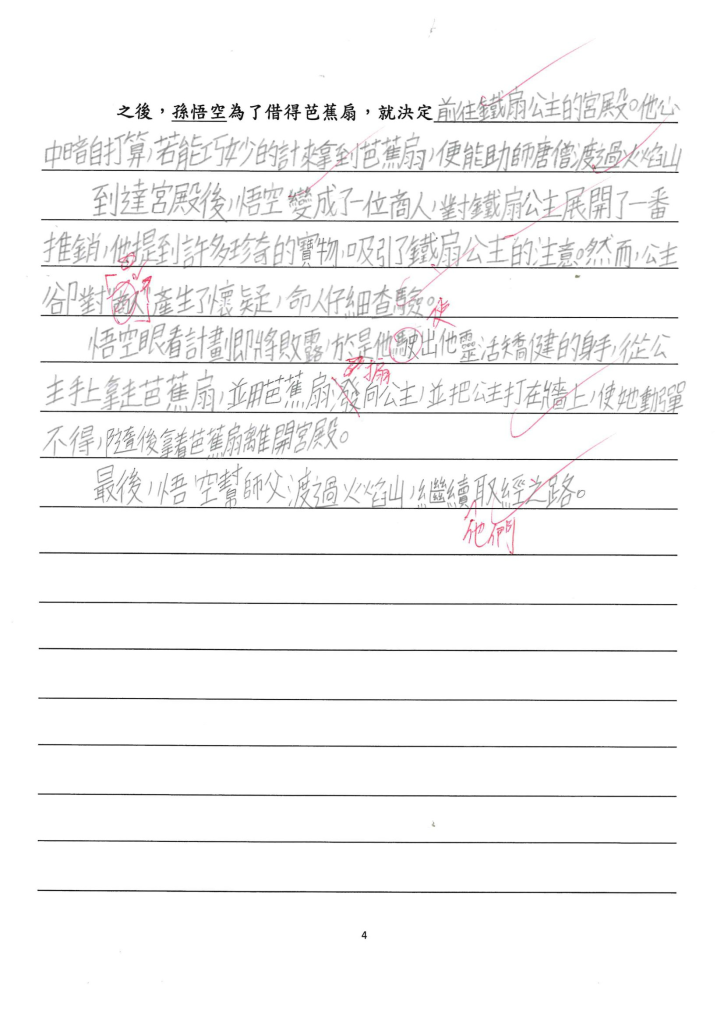 之後，孫悟空為了借得芭蕉扇，就決定前往鐵扇公主的宮殿。他心
中暗自打算，若能巧妙的計來拿到芭蕉扇，便能助師唐僧渡過火焰山
到達宮殿後，悟空變成了一位商人，對鐵扇公主展開了一番
推銷，他提到許多珍奇的寶物，吸引了鐵扇公主的注意。然而，公主
卻對商人產生了懷疑，命人仔細查驗。
使
悟空眼看計劃即將敗露，於是他駛出他靈活矯健的身手，從公
扇
主手上拿走芭蕉扇，並用芭蕉扇發向公主，並把公主打在牆上，使她動彈
不得，隨後拿着芭蕉扇離開宮殿。
最後，悟空幫師父渡過火焰山，繼續取經之路。
他們
4